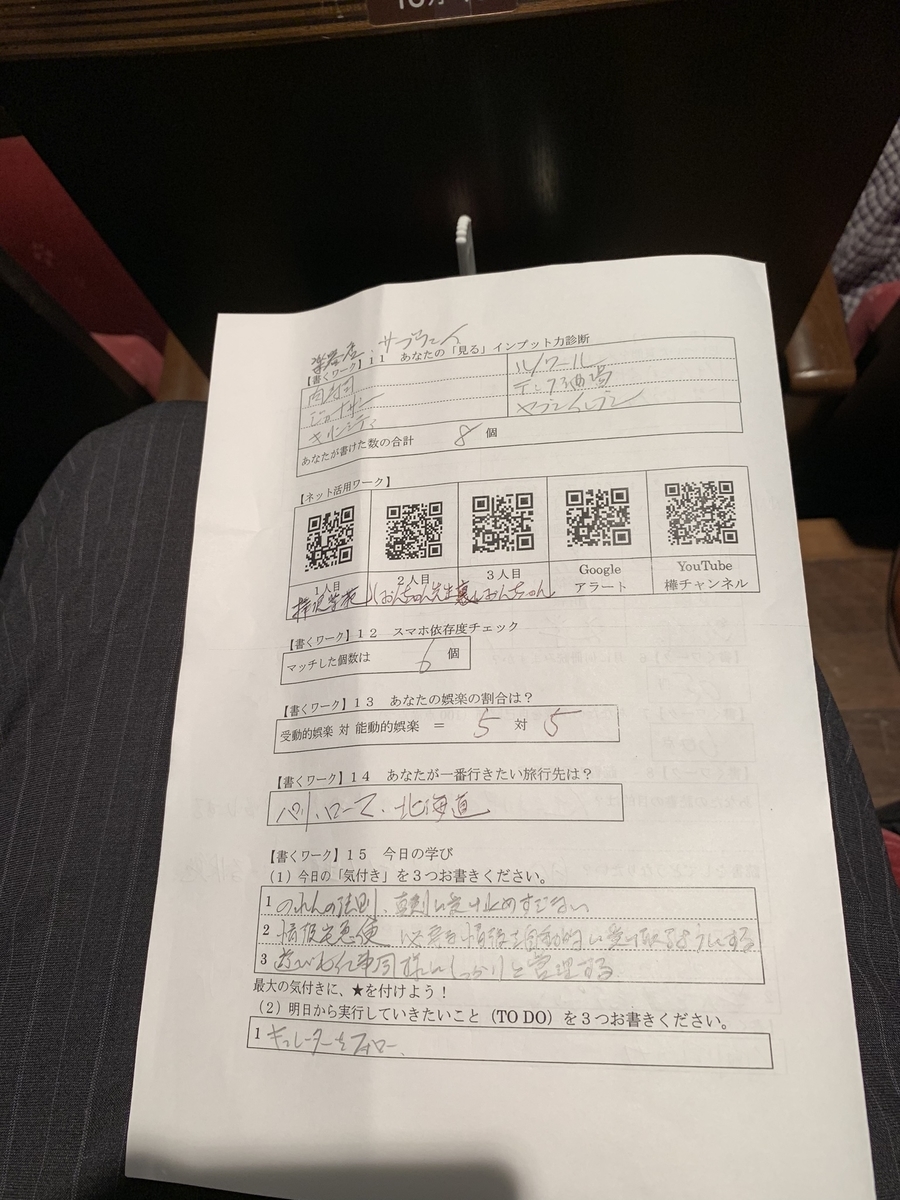 楽器店、サブウェイ
【書くワーク】11 あなたの「見る」インプット力診断
肉寿司
ジョナサン
キリンシティ
ルノワール
セブンイレブン
あなたが書けた数の合計 8 個
【ネット活用ワーク】
1人目
2人目
3人目
Google アラート
YouTube 樺チャンネル
樺沢紫苑
しおんちゃん先生
裏しおんちゃん
【書くワーク】12 スマホ依存度チェック
マッチした個数は 6 個
【書くワーク】13 あなたの娯楽の割合は？
受動的娯楽 対 能動的娯楽 ＝ 5 対 5
【書くワーク】14 あなたが一番行きたい旅行先は？
パリ、ローマ、北海道
【書くワーク】15 今日の学び
（1）今日の「気付き」を3つお書きください。
1 のれんの法則、真剣に受け止めすぎない
2 情報宅急便 必要な情報を自動的に受け取るようにする
3 遊びも仕事同様にしっかりと管理する
最大の気付きに、★を付けよう！
（2）明日から実行していきたいこと（TO DO）を3つお書きください。
1 キュレーターをフォロー、